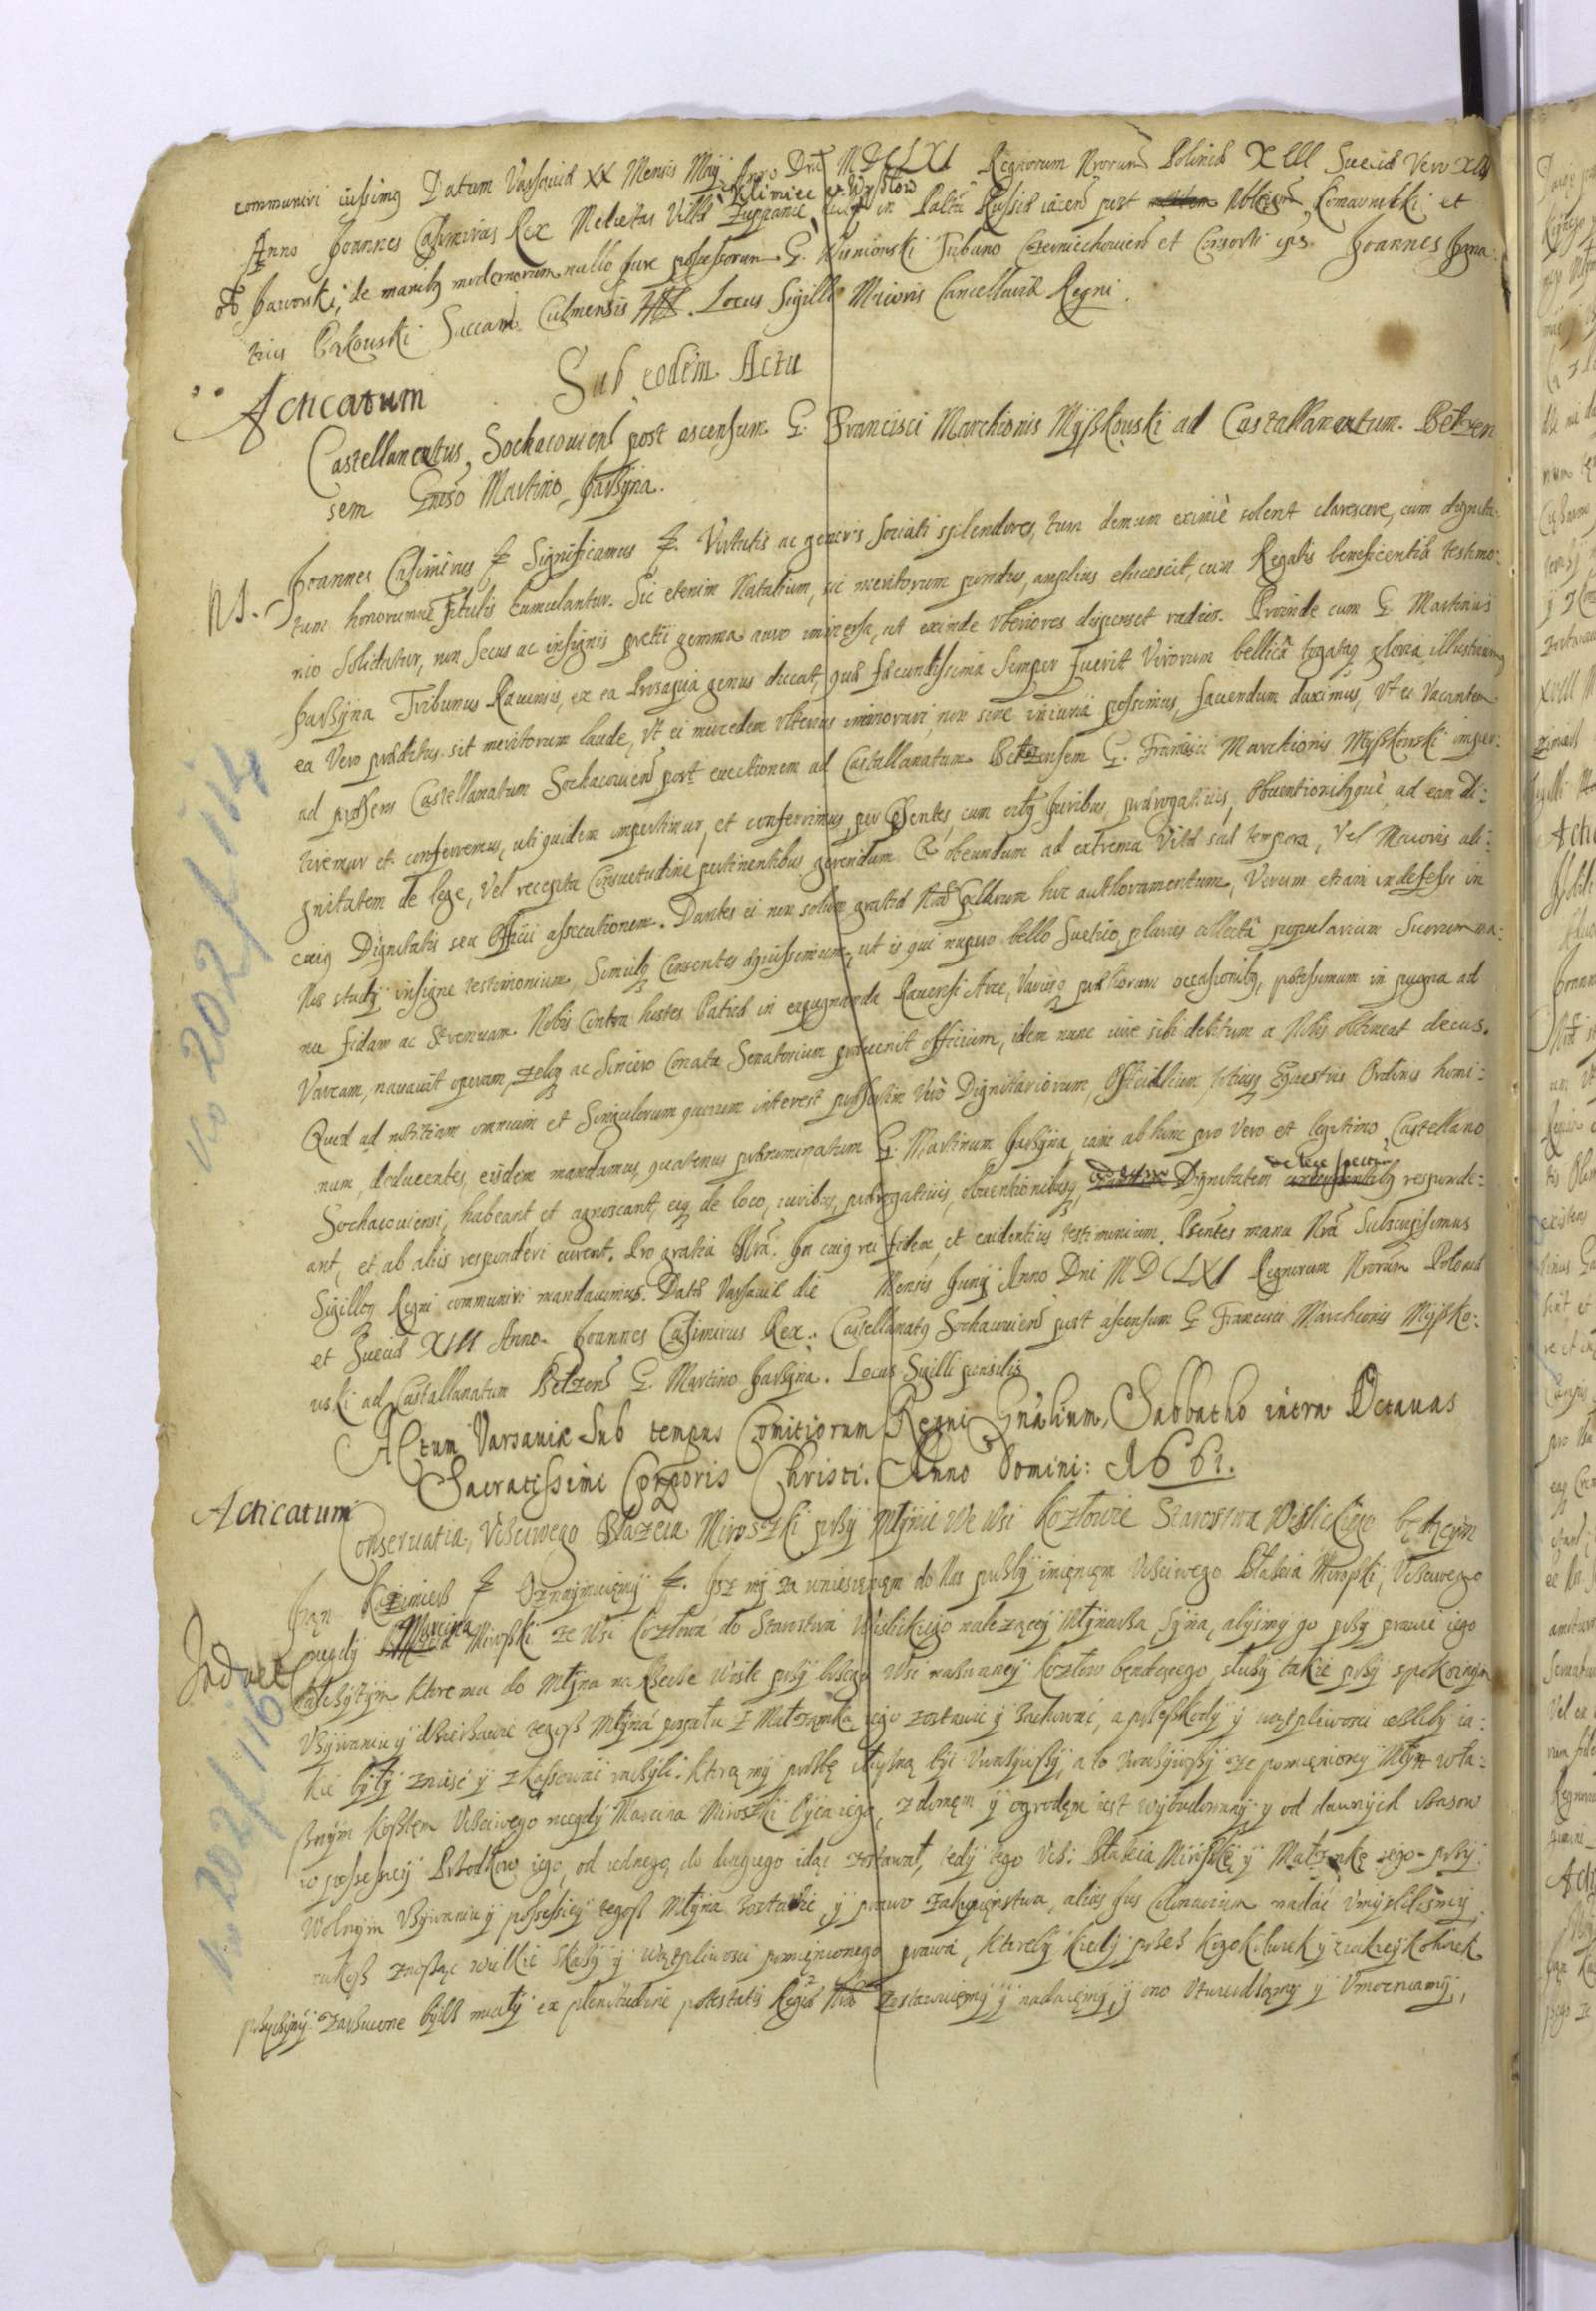 communiri iussimus Datum Varsaviæ XX Mensis Maij Anno Dni MDCLXI Regnorum Nrorum Poloniæ XIII Sueciæ Vero XIIII
Klimiec et Wysłow
Anno Joannes Casimirus Rex Medietas Villæ Zuppanie in Palatu Russiæ iacen post Nobiles Komarnicki et
Jaworski, de manibus modernorum nullo Jure possessorum G. Wisniowski Tribuno Czerniechovien et Consorti eius Joannes Igna:
tius Bąkowski Succam. Culmensis Locus Sigilli Maioris Cancellariæ Regni.
Sub eodem Actu
Acticatum
Castellanatus Sochacovien post ascensum G. Francisci Marchionis Myszkowski ad Castallanatum Betzen
sem Gnoso Martino Jarzyna.
NS.
Joannes Casimirus Significamus Virtutis ac generis sociati splendores, tum demum eximiè solent clarescere, cum dignita:
tum honorumue Titulis cumulantur. Sic etenim Natalium, sic meritorum pondus, amplius elucescit, cum Regalis beneficentiæ testimo:
nio solidatur, non secus ac insignis pretii gemma auro immersa, ut exinde vberiores dispenset radios. Proinde cum G. Martinus
Jarzyna Tribunus Ravensis, ex ea Prosapia genus ducat, quæ fæcundissima semper fuerit Virorum bellicâ togataq gloria illustrium,
ea Vero præditus sit meritorum laude, Vt ei mercedem vlterius immorari, non sine iniuria possimus, fauendum duximus, Vt ei Vacantem
ad præsens Castellanatum Sochacovien post euectionem ad Castallanatum Betzensem G. Francisci Marchionis Myszkowski imper:
tiremur et conferremus, uti quidem impertimur, et conferrimus, per præsentes, cum oibus Iuribus, prærogatiuis, Obuentionibusquè, ad eam Di:
gnitatem de lege, Vel recepta Consuetudine pertinentibus gerendum & obeundum ad extrema Vitæ suæ tempora, Vel Maioris ali:
cuius Dignitatis seu Officii assecutionem. Dantes ei non solum gratiæ Nræ hoc authoramentum, Verum etiam indefessi in
Nos studij insigne testimonium, Simulq Censentes dignissimum, ut is qui nupero bello Suetico, pluries collectâ popularium Suorum ma:
nu fidam ac Strenuam Nobis Contra hostes Patriæ in expugnanda Ravensi Arce, Variisq præliorum occasionibus, potissimum in pugna ad
Varcam, nauauit operam, zeloq ac Sincero Conatu Senatorium præuenit officium, idem nunc iure sibi debitum a Nobis obtineat decus.
Quod ad notitiam omnium et Singulorum quorum interest præsertim Verò Dignitariorum, Officialium, totiusq Equestris Ordinis homi:
num, deducentes, eisdem mandamus, quatenus prænominatum G. Martinum Jarzyna iam ab hinc pro Vero et legitimo Castellano
Sochacouiensi, habeant et agnoscant, eiq de loco, iuribus, prærogatiuis, obuentionibusq, Dignitatem de lege spectan responde:
ant, et ab aliis responderi curent. Pro gratia Nra. In cuius rei fidem, et euidentius testimonium. Præsentes manu Nrâ Subscripsimus
Sigilloq Regni communiri mandauimus. Datæ Varsauiæ die Mensis Junij Anno Dni MDCLXI Regnorum Nrorum Poloniæ
et Sueciæ XIII Anno. Joannes Casimirus Rex. Castellanatus Sochacouien post ascensum G Francisci Marchionis Myszko:
wski ad Castallanatum Betzen G. Martino Jarzyna. Locus Sigilli pensilis
Actum Varsaviæ Sub tempus Comitiorum Regni Gnalium, Sabbatho intra Octauas
Sacratissimi Corporis Christi. Anno Domini: 1661.
Acticatum
Conseruatia, Vczciwego Błazeia Miroszki przy Młynie We Wsi Kozłowie Starostwa Wislickiego będącym
Jan Kazimierz Oznaymuiemy Isz my za wniesięnięm do Nas prozby imięnięm Vczciwego Błazeia Miroszki, Vczciwego
niegdy Marcina Miroszki ze Wsi Kozłowa do Starostwa Wislickiego nalezącey Młynarza, Syna, abysmy go przy prawie iego
Induct
należytym Które ma do Młyna na Rzece Wisle przy brzegu Wsi nazwaney Kozłow będącego, słuzy takie przy spokoinym
Vzywaniu y dzierzawie tegosz Młyna pospołu z Małzonką iego zostawic y Zachowac, a przeszkody y wątpliwosci ieżeliby ia:
kie były zniesc y zkassowac raczyli. Którą my prozbę słuszną być Vważywszy, a to Vważywszy że pomięniony Młyn wła:
sznym Kosztem Vczciwego niegdy Marcina Miroszki Oyca iego, z domęm y ogrodęm iest wybudowany, y od dawnych czasow
w possessiey Przodkow iego, od iednego do drugiego idąc zostawał, tedy tego Vcz: Błazeia Miroszkę y Małzonkę iego przy
Wolnym Vzywaniu y possessiey tegosz Młyna zostawic, y prawo zakupięnstwa, alias Jus Colonarium nadać Vmyslilismy,
takosz znosząc wszelkie Skazy y wątpliwosci pomięnionego prawa, Któreby kiedy przez kogokolwiek y z iakieykolwiek
przyczyny zarzucone bydz miały ex plenitudine potestatis Regiæ Nræ Zostawuięmy y nadaięmy, y ono Vtwierdzamy y Vmocniamy,
No 202/114
No 202/116